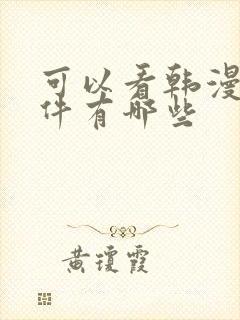 可以看韩漫
件有哪些
黄琼霞